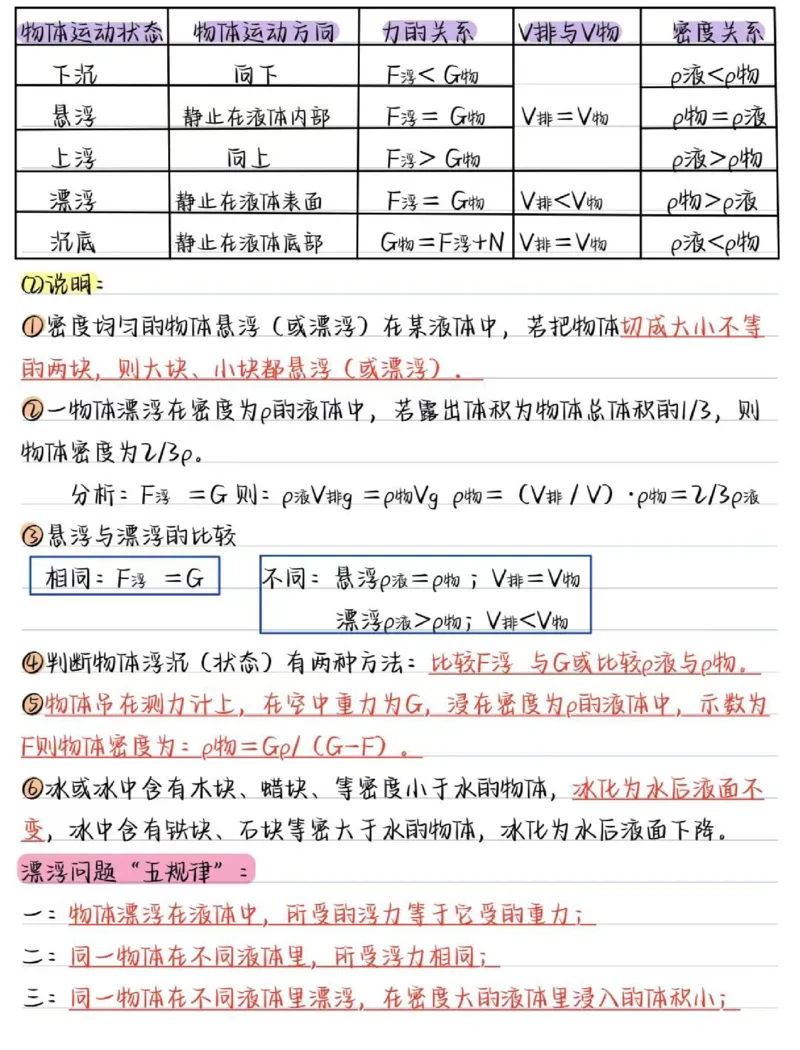 物体运动状态 物体运动方向 力的关系 V排与V物 密度关系
下沉 向下 F浮< G物 ρ液<ρ物
悬浮 静止在液体内部 F浮= G物 V排=V物 ρ物=ρ液
上浮 向上 F浮> G物 ρ液>ρ物
漂浮 静止在液体表面 F浮= G物 V排<V物 ρ物>ρ液
沉底 静止在液体底部 G物=F浮+N V排=V物 ρ液<ρ物
(2)说明:
①密度均匀的物体悬浮(或漂浮)在某液体中,若把物体切成大小不等
的两块,则大块、小块都悬浮(或漂浮).
②一物体漂浮在密度为ρ的液体中,若露出体积为物体总体积的1/3,则
物体密度为2/3ρ。
分析:F浮 =G 则:ρ液V排g =ρ物Vg ρ物=(V排/V)·ρ物=2/3ρ液
③悬浮与漂浮的比较
相同:F浮 =G 不同:悬浮ρ液=ρ物;V排=V物
漂浮ρ液>ρ物;V排<V物
④判断物体浮沉(状态)有两种方法:比较F浮 与G或比较ρ液与ρ物。
⑤物体吊在测力计上,在空中重力为G,浸在密度为ρ的液体中,示数为
F则物体密度为:ρ物=Gρ/(G-F)。
⑥冰或冰中含有木块、蜡块、等密度小于水的物体,冰化为水后液面不
变,冰中含有铁块、石块等密大于水的物体,冰化为水后液面下降。
漂浮问题“五规律”:
一:物体漂浮在液体中,所受的浮力等于它受的重力;
二:同一物体在不同液体里,所受浮力相同;
三:同一物体在不同液体里漂浮,在密度大的液体里浸入的体积小;